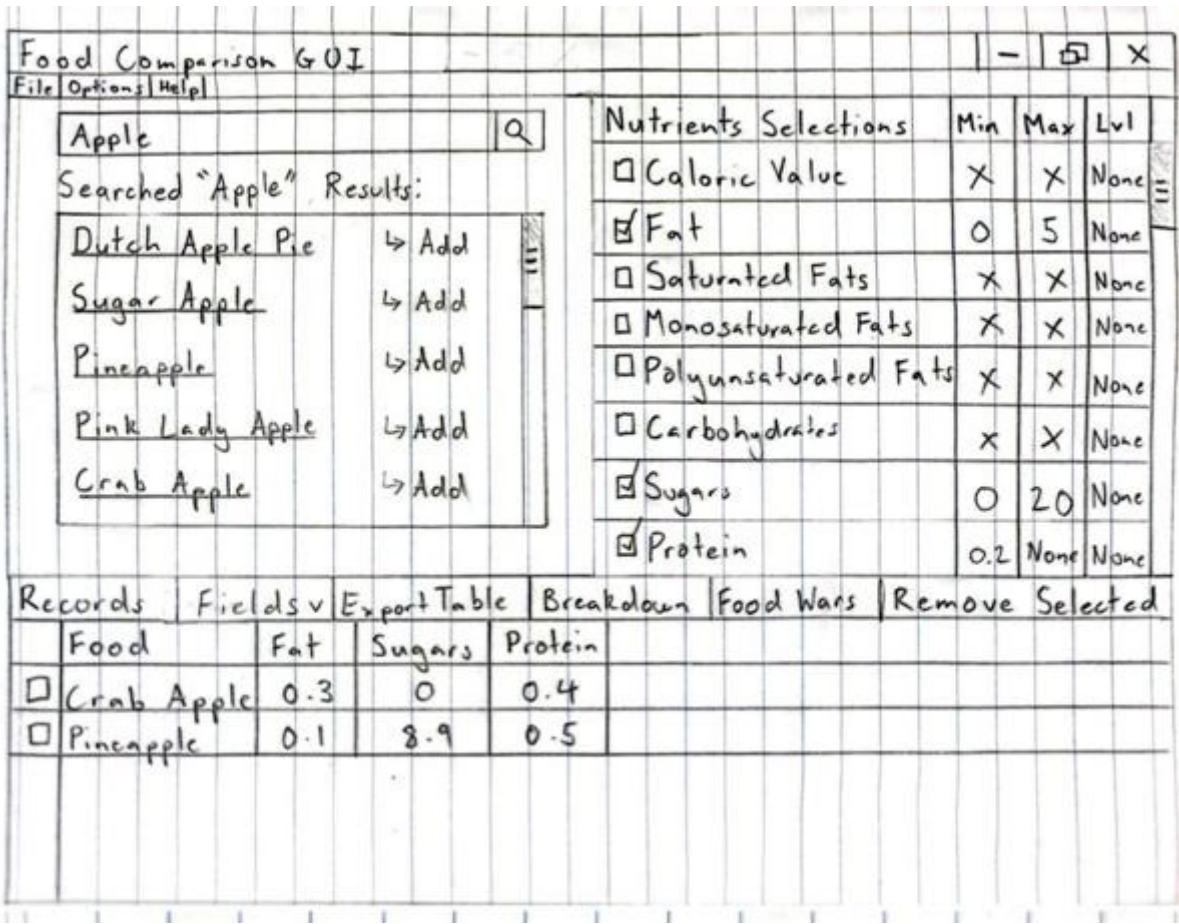 Food Comparison GUI - X
File Options Help
Apple
Searched "Apple" Results:
Dutch Apple Pie ↳ Add
Sugar Apple ↳ Add
Pineapple ↳ Add
Pink Lady Apple ↳ Add
Crab Apple ↳ Add
Nutrients Selections Min Max Lvl
Caloric Value X X None
Fat 0 5 None
Saturated Fats X X None
Monosaturated Fats X X None
Polyunsaturated Fats X X None
Carbohydrates X X None
Sugars 0 20 None
Protein 0.2 None None
Records Fields v Export Table Breakdown Food Wars Remove Selected
Food Fat Sugars Protein
Crab Apple 0.3 0 0.4
Pineapple 0.1 8.9 0.5